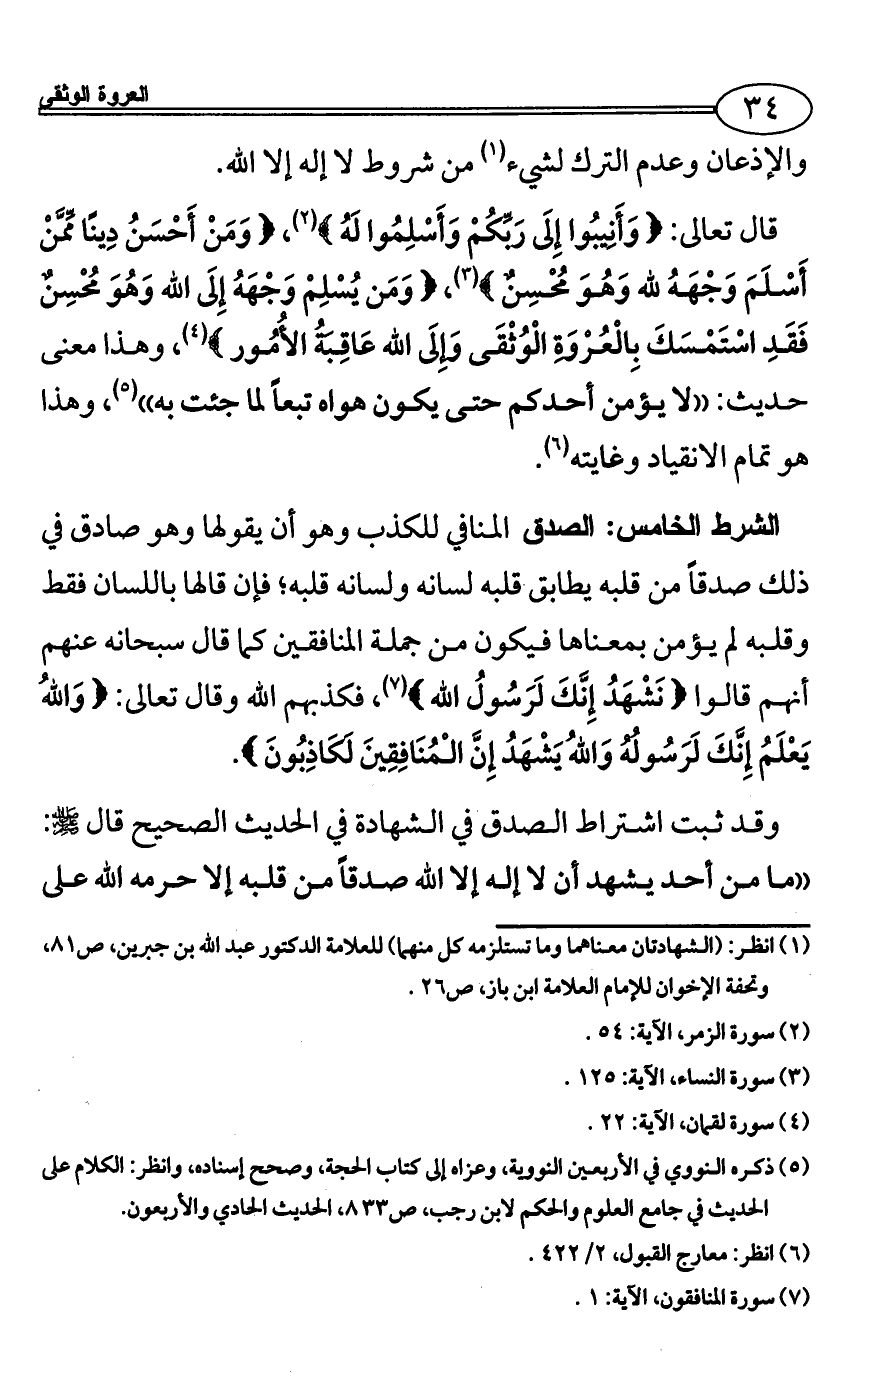 ٣٤
العروة الوثقى
والإذعان وعدم الترك لشيء(١) من شروط لا إله إلا الله.
قال تعالى: ﴿ وَأَنِيبُوا إِلَى رَبِّكُمْ وَأَسْلِمُوا لَهُ ﴾(٢)، ﴿ وَمَنْ أَحْسَنُ دِينًا مِّمَّنْ
أَسْلَمَ وَجْهَهُ لله وَهُوَ مُحْسِنٌ ﴾(٣)، ﴿ وَمَن يُسْلِمْ وَجْهَهُ إِلَى الله وَهُوَ مُحْسِنٌ
فَقَدِ اسْتَمْسَكَ بِالْعُرْوَةِ الْوُثْقَى وَإِلَى الله عَاقِبَةُ الأُمُور ﴾(٤)، وهذا معنى
حديث: ((لا يؤمن أحدكم حتى يكون هواه تبعاً لما جئت به))(٥)، وهذا
هو تمام الانقياد وغايته(٦).
الشرط الخامس: الصدق المنافي للكذب وهو أن يقولها وهو صادق في
ذلك صدقاً من قلبه يطابق قلبه لسانه ولسانه قلبه؛ فإن قالها باللسان فقط
وقلبه لم يؤمن بمعناها فيكون من جملة المنافقين كما قال سبحانه عنهم
أنهم قالوا ﴿ نَشْهَدُ إِنَّكَ لَرَسُولُ الله ﴾(٧)، فكذبهم الله وقال تعالى: ﴿ وَاللهُ
يَعْلَمُ إِنَّكَ لَرَسُولُهُ وَاللهُ يَشْهَدُ إِنَّ الْمُنَافِقِينَ لَكَاذِبُونَ ﴾.
وقد ثبت اشتراط الصدق في الشهادة في الحديث الصحيح قال ﷺ:
((ما من أحد يشهد أن لا إله إلا الله صدقاً من قلبه إلا حرمه الله على
(١) انظر: (الشهادتان معناهما وما تستلزمه كل منهما) للعلامة الدكتور عبد الله بن جبرين، ص٨١،
وتحفة الإخوان للإمام العلامة ابن باز، ص٢٦ .
(٢) سورة الزمر، الآية: ٥٤ .
(٣) سورة النساء، الآية: ١٢٥ .
(٤) سورة لقمان، الآية: ٢٢ .
(٥) ذكره النووي في الأربعين النووية، وعزاه إلى كتاب الحجة، وصحح إسناده، وانظر: الكلام على
الحديث في جامع العلوم والحكم لابن رجب، ص٨٣٣، الحديث الحادي والأربعون.
(٦) انظر: معارج القبول، ٢/ ٤٢٢ .
(٧) سورة المنافقون، الآية: ١ .